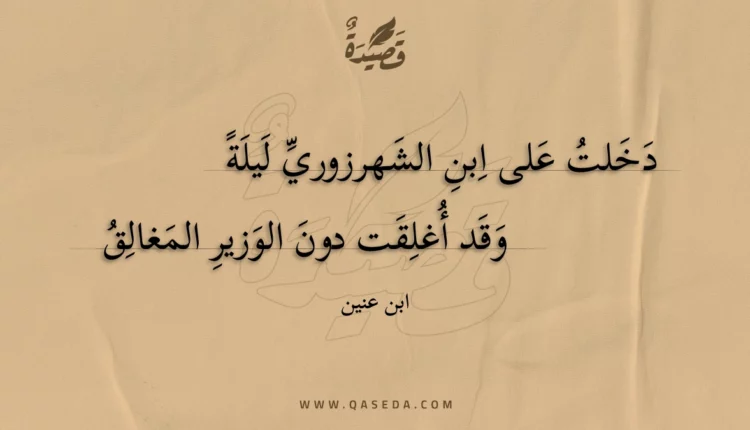 قَصِيْدَةٌ
دَخَلتُ عَلى اِبنِ الشَهرزوريِّ لَيلَةً
وَقَد أُغلِقَت دونَ الوَزيرِ المَغالِقُ
ابن عنين
WWW.QASEDA.COM